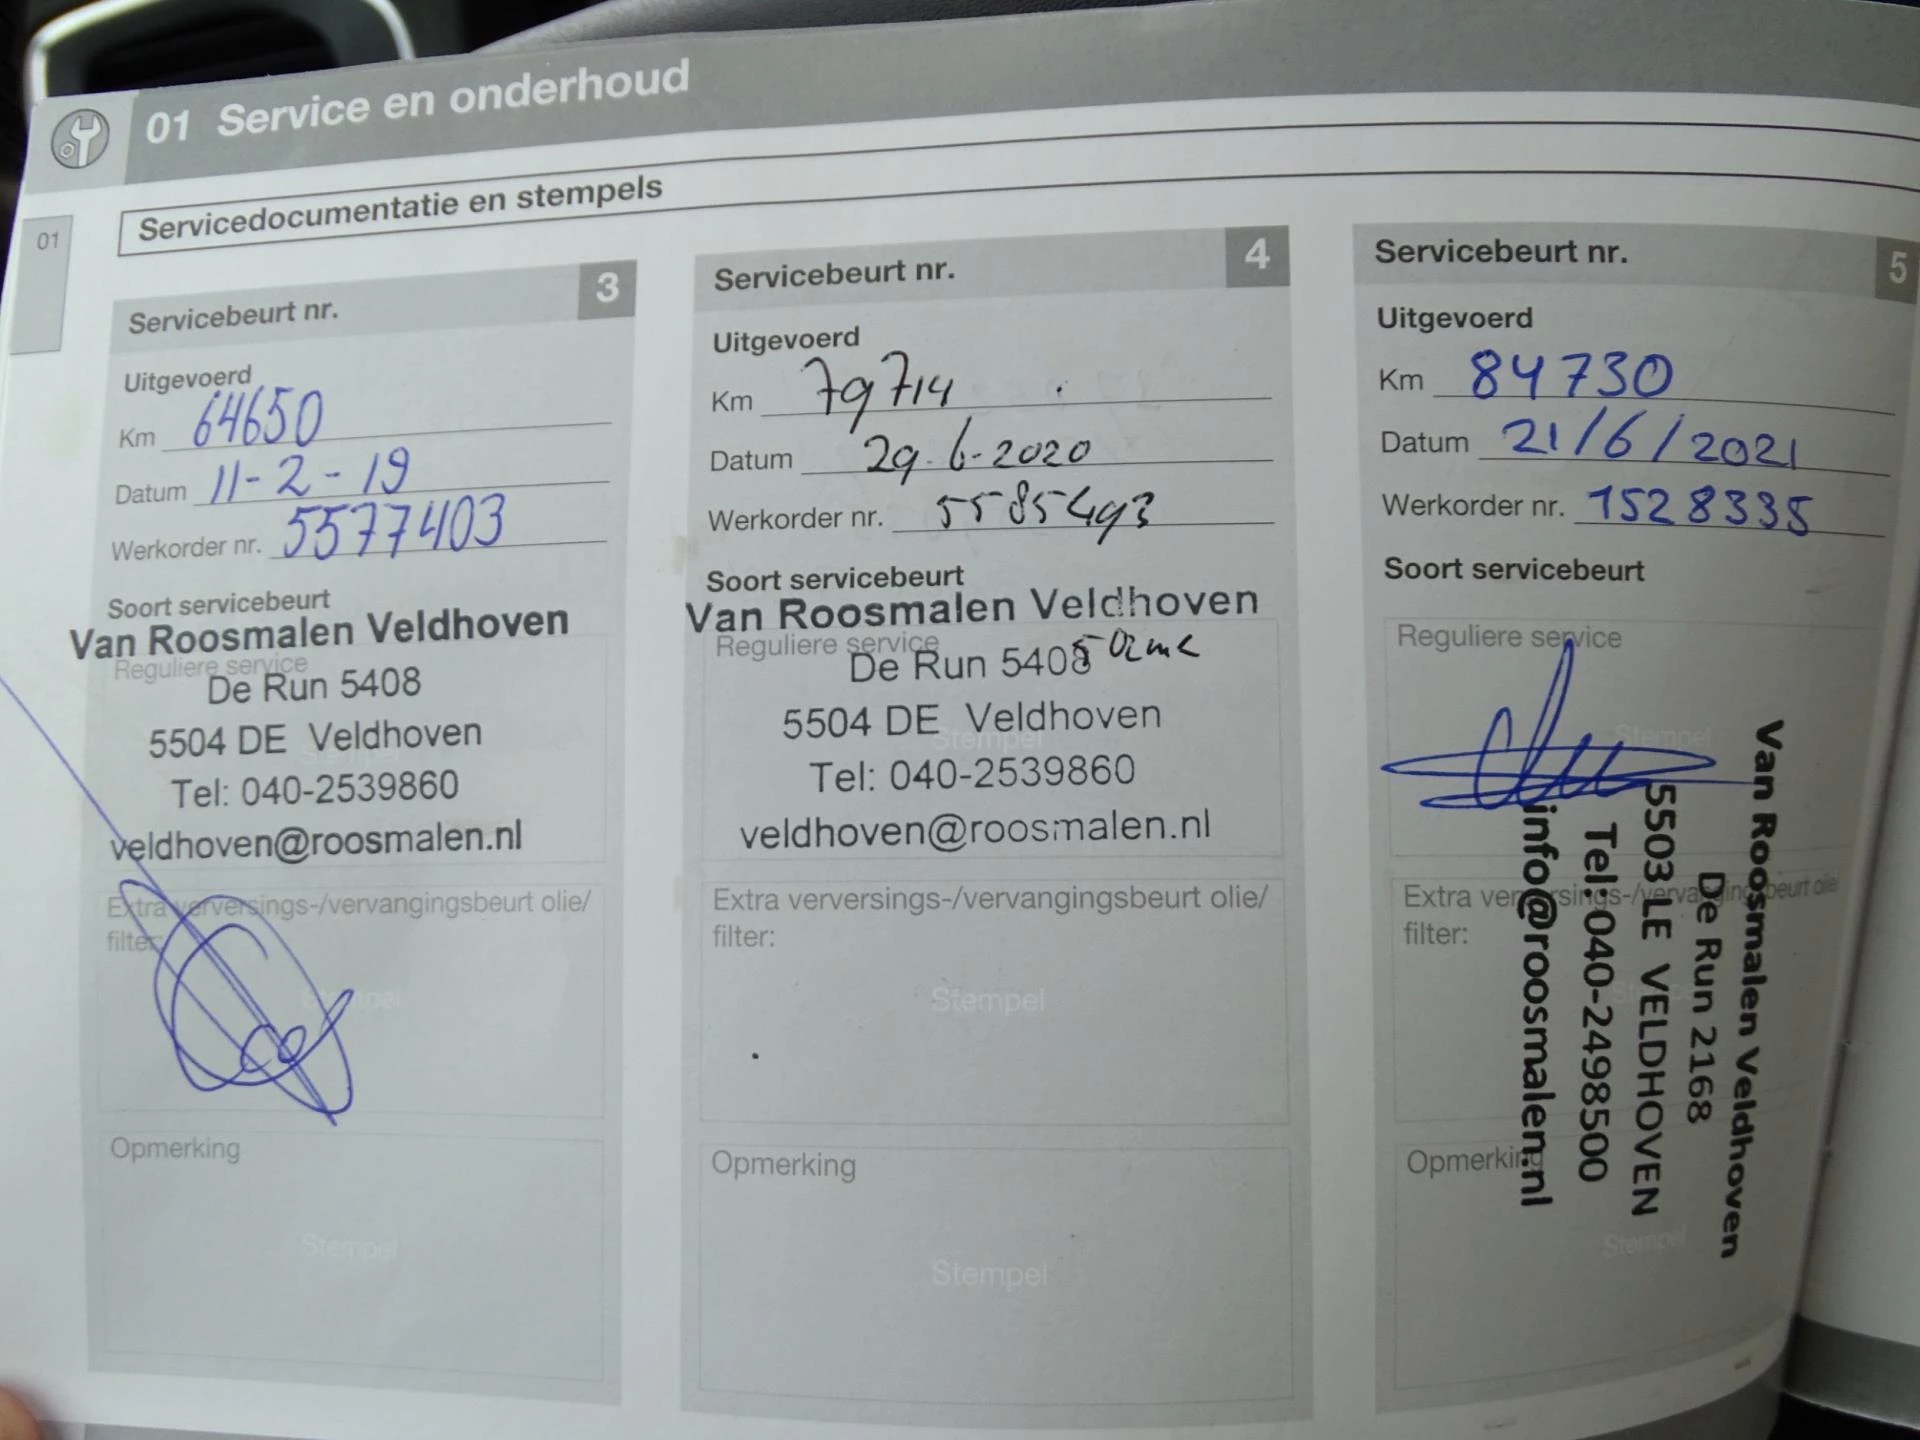 01 Service en onderhoud
01
Servicedocumentatie en stempels
Servicebeurt nr. 3
Uitgevoerd
Km 64650
Datum 11-2-19
Werkorder nr. 5577403
Soort servicebeurt
Van Roosmalen Veldhoven
Reguliere service
De Run 5408
5504 DE Veldhoven
Stempel
Tel: 040-2539860
veldhoven@roosmalen.nl
Extra verversings-/vervangingsbeurt olie/
filter:
Stempel
Opmerking
Stempel
Servicebeurt nr. 4
Uitgevoerd
Km 79714
Datum 29-6-2020
Werkorder nr. 5585493
Soort servicebeurt
Van Roosmalen Veldhoven
Reguliere service
De Run 5408
5504 DE Veldhoven
Stempel
Tel: 040-2539860
veldhoven@roosmalen.nl
Extra verversings-/vervangingsbeurt olie/
filter:
Stempel
Opmerking
Stempel
Servicebeurt nr. 5
Uitgevoerd
Km 84730
Datum 21/6/2021
Werkorder nr. 1528335
Soort servicebeurt
Reguliere service
Stempel
Van Roosmalen Veldhoven
De Run 2168
5503 LE VELDHOVEN
Tel: 040-2498500
info@roosmalen.nl
Extra verversings-/vervangingsbeurt olie/
filter:
Stempel
Opmerking
Stempel